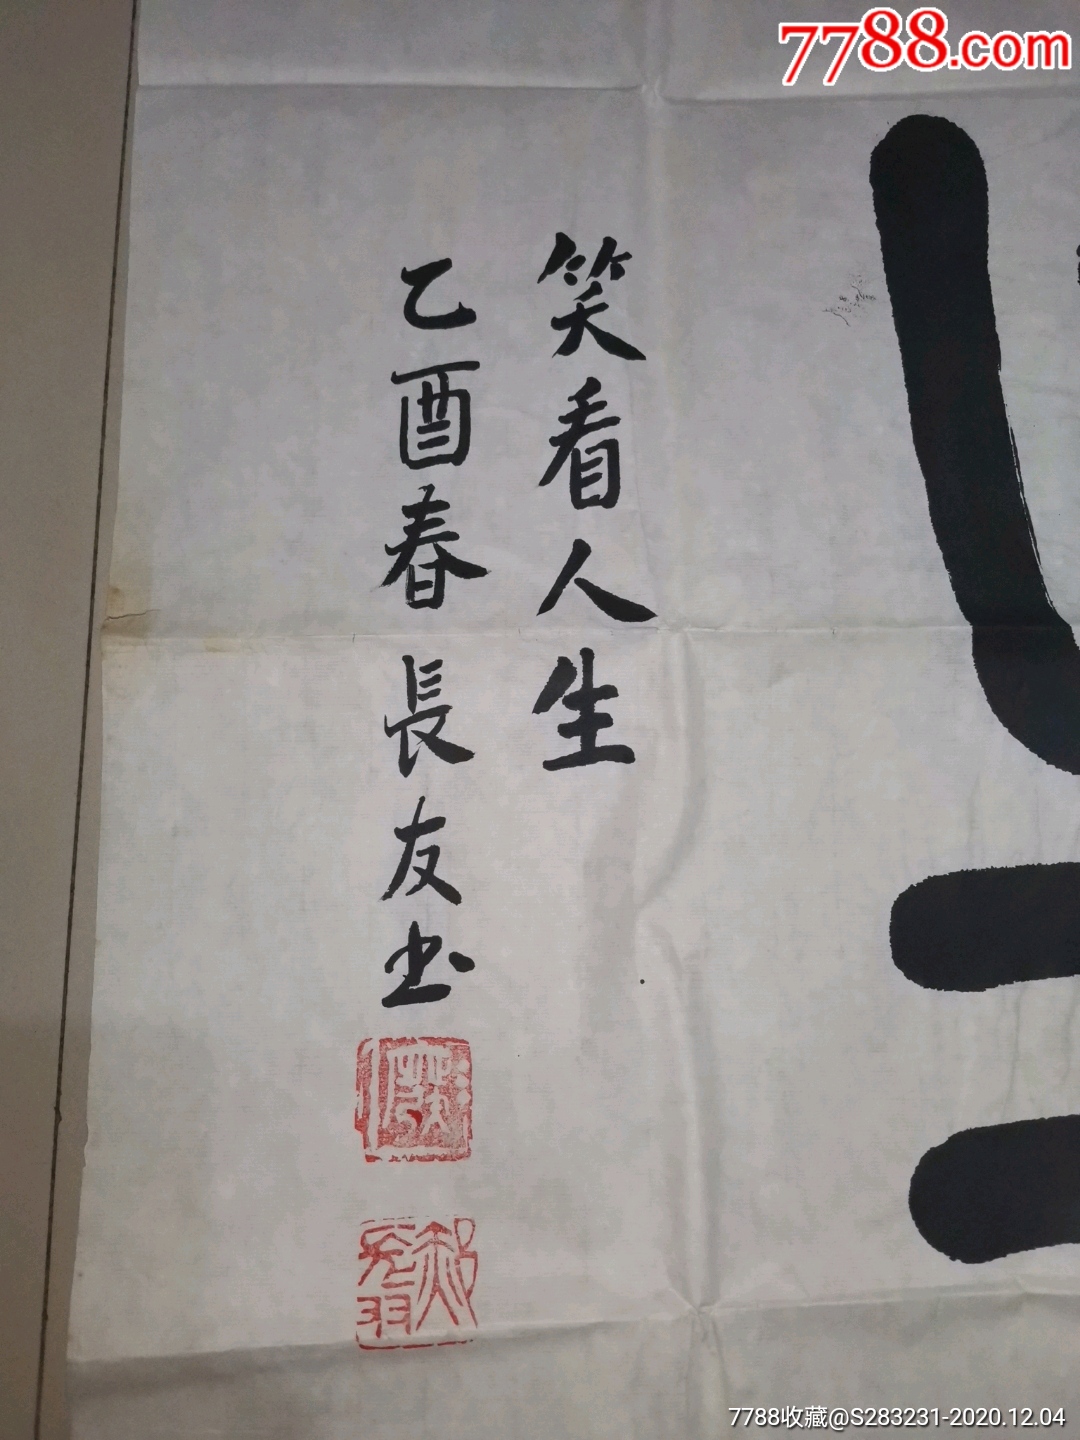 7788.com
笑看人生
乙酉春長友书
郝長友
7788收藏@S283231-2020.12.04